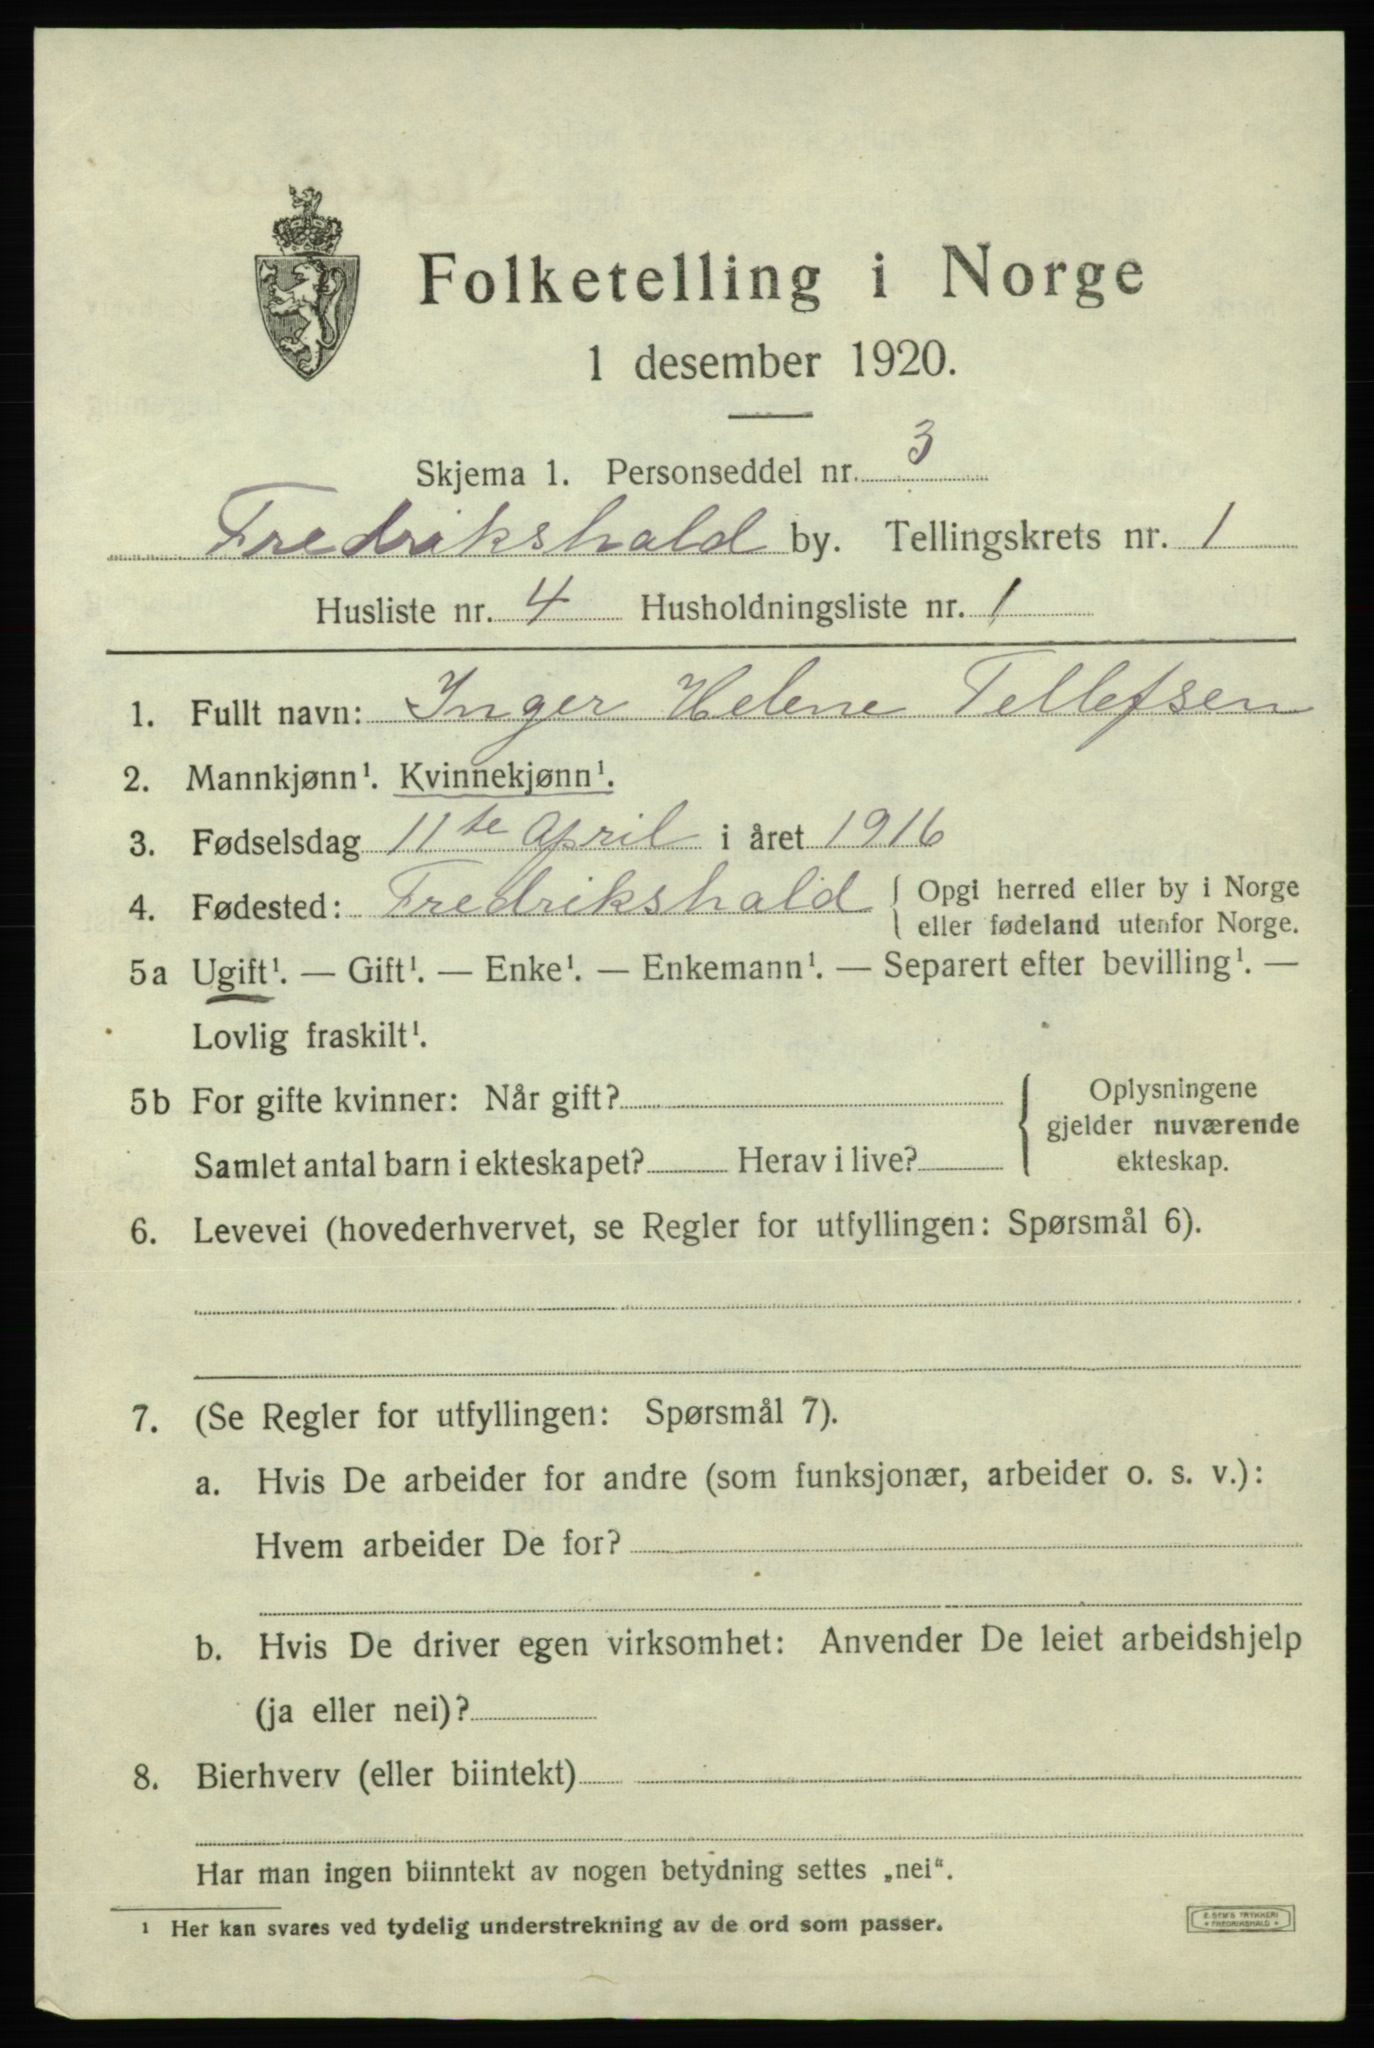 Folketelling i Norge
1 desember 1920.
Skjema 1. Personseddel nr. 3
Fredrikshald by. Tellingskrets nr. 1
Husliste nr. 4 Husholdningsliste nr. 1
1. Fullt navn: Inger Helene Tellefsen
2. Mannkjønn¹. Kvinnekjønn¹.
3. Fødselsdag 11te April i året 1916
4. Fødested: Fredrikshald { Opgi herred eller by i Norge
eller fødeland utenfor Norge.
5a Ugift¹. — Gift¹. — Enke¹. — Enkemann¹. — Separert efter bevilling¹. —
Lovlig fraskilt¹.
5b For gifte kvinner: Når gift? { Oplysningene
gjelder nuværende
Samlet antal barn i ekteskapet? Herav i live? ekteskap.
6. Levevei (hovederhvervet, se Regler for utfyllingen: Spørsmål 6).
7. (Se Regler for utfyllingen: Spørsmål 7).
a. Hvis De arbeider for andre (som funksjonær, arbeider o. s. v.):
Hvem arbeider De for?
b. Hvis De driver egen virksomhet: Anvender De leiet arbeidshjelp
(ja eller nei)?
8. Bierhverv (eller biintekt)
Har man ingen biinntekt av nogen betydning settes „nei“.
¹ Her kan svares ved tydelig understrekning av de ord som passer.
E. SEM'S TRYKKERI
• FREDRIKSHALD •